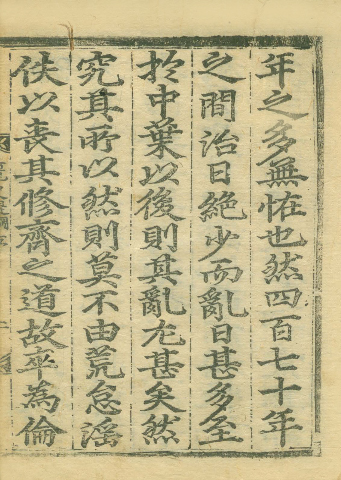 年之多無恠也然四百七十年
之間治日絶少而亂日甚多至
於中葉以後則其亂尤甚矣然
究其所以然則莫不由荒怠淫
佚以喪其修齊之道故卒為倫